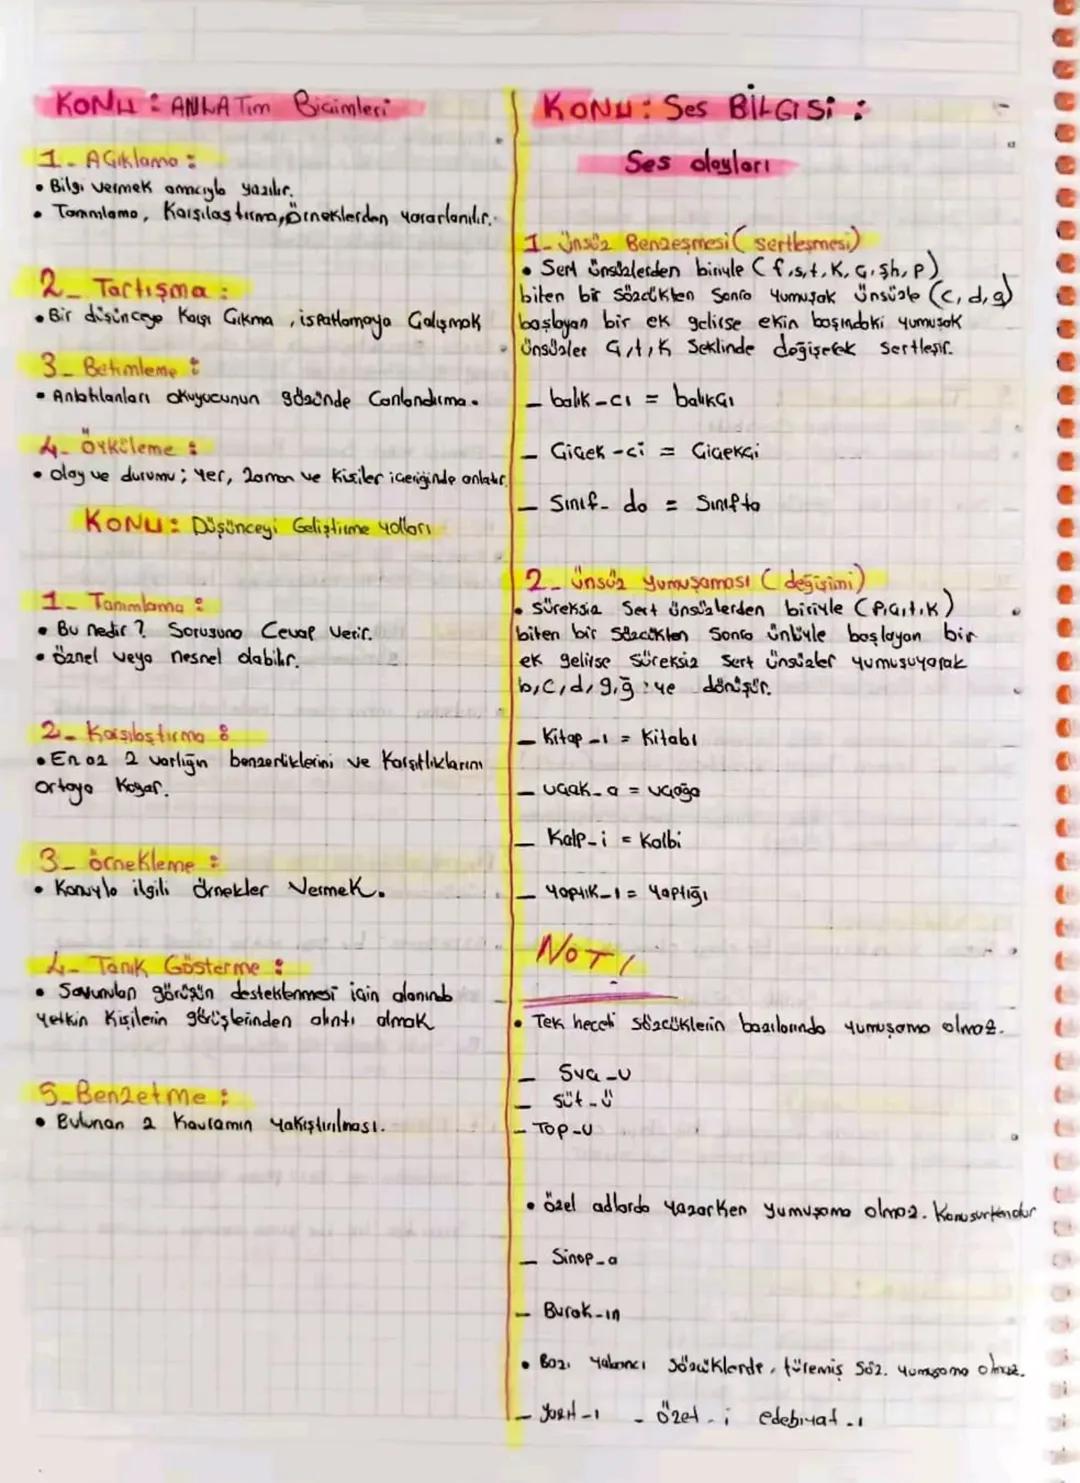 KONU : ANLATım Biçimleri
1- AÇıklama :
• Bilgi vermek amacıyla yazılır.
• Tanımlama, Karşılaştırma, Örneklerden yararlanılır.
2- Tartışma :
• Bir düşünceye Karşı Çıkma, ispatlamaya Çalışmak
3- Betimleme :
• Anlatılanları okuyucunun gözünde Canlandırma.
4- Öyküleme :
• olay ve durumu ; yer, zaman ve Kişiler içeriğinde anlatır.
KONU : Düşünceyi Geliştirme yolları
1- Tanımlama :
• Bu nedir ? Sorusuna Cevap verir.
• öznel veya nesnel olabilir.
2- Karşılaştırma :
• En az 2 varlığın benzerliklerini ve Karşıtlıklarını
ortaya Koyar.
3- örnekleme :
• Konuyla ilgili örnekler vermek.
4- Tanık Gösterme :
• Savunulan görüşün desteklenmesi için alanında
yetkin Kişilerin görüşlerinden alıntı almak
5- Benzetme :
• Bulunan 2 Kavramın yakıştırılması.
KONU : Ses BİLGİSİ :
Ses olayları
1- Ünsüz Benzeşmesi ( sertleşmesi)
• Sert ünsüzlerden biriyle ( f,s,t, K, ç, şh, p)
biten bir sözcükten sonra yumuşak ünsüzle (c, d, g)
başlayan bir ek gelirse ekin başındaki yumuşak
ünsüzler ç,t,K şeklinde değişerek sertleşir.
- balık -cı = balıkçı
- Çiçek -ci = Çiçekçi
- Sınıf- da = Sınıfta
2- ünsüz yumuşaması ( değişimi)
• süreksiz Sert ünsüzlerden biriyle (P,ç,t,K)
biten bir Sözcükten sonra ünlüyle başlayan bir
ek gelirse süreksiz sert ünsüzler yumuşuyarak
b,c,d,g,ğ 'ye dönüşür.
- Kitap -ı = Kitabı
- uçak- a = uçağa
- Kalp- i = Kalbi
- yaptık-ı = yaptığı
NOT/
• Tek heceli sözcüklerin bazılarında yumuşama olmaz.
- Suç -u
- süt -ü
- Top -u
• özel adlarda yazarken yumuşama olmaz. Konuşurken olur
- Sinop -a
- Burak -ın
• Bazı yabancı sözcüklerde, türemiş söz. yumuşama olmaz.
- yazıt -ı - özet - i edebiyat -ı